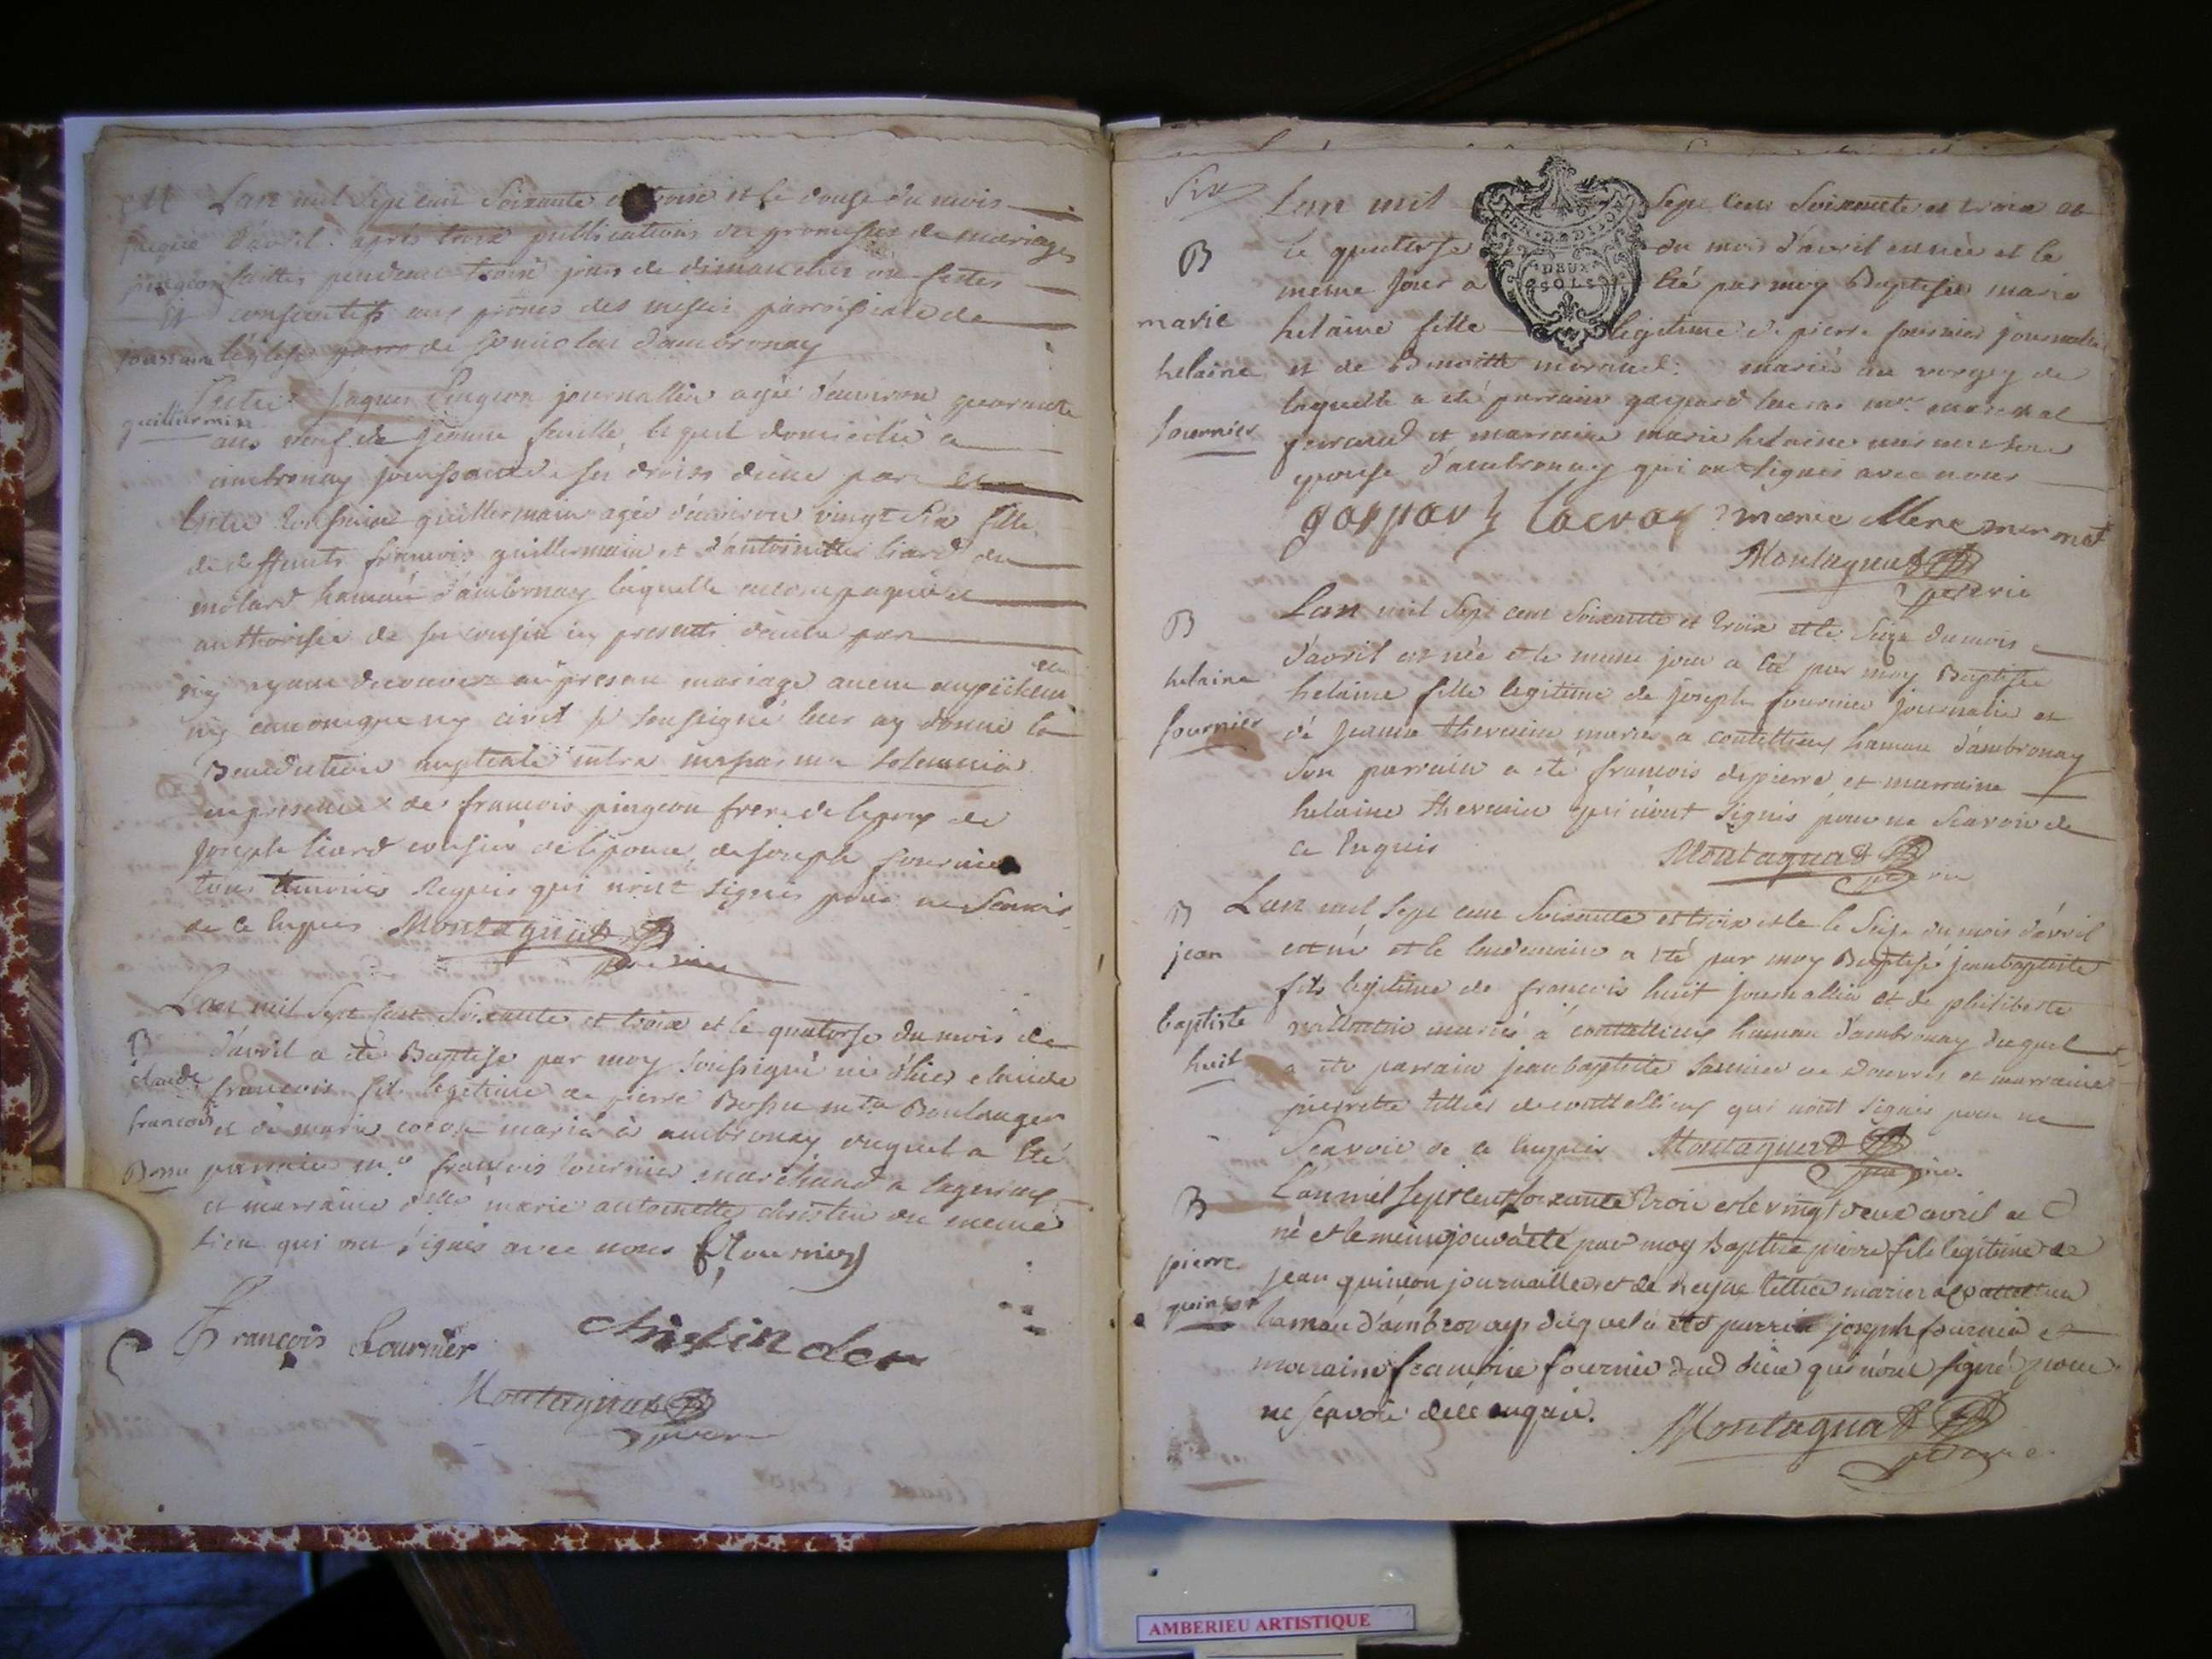 M
jaque
pingeon
et
toussaine
guillermain
Lan mil sept cent soixante et trois et le douze du mois
d'avril apres trois publications des promesses de mariages
faittes pendant trois jours de dimanches ou festes
consecutifs aux prones des messes parroissiale de
l'eglise de st nicolas d'ambronay
Entre Jaques Pingeon journallier agé d'environ quarante
ans veuf de jeanne feuille lequel domicilié a
ambronay jouissant de ses droits d'une part
Entre toussaine guillermain agée d'environ vingt six fille
de deffunts françois guillermain et d'antoinette liard du
molard hameau d'ambronay laquelle accompagnée et
authorisée de son cousin icy present d'autre part
n'y ayant decouvert au present mariage aucun empechem
ny canonique ny civil je soussigné leur ay donné la
Benediction nuptiale intra missarum solemnia
en presence de françois pingeon frere de lepoux de
joseph liard cousin de lepouse, de joseph fournier
tous temoins requis qui n'ont signés pour ne scavoir
de ce enquis Montagnat
B
claude
françois
Bossu
Lan mil sept cent soixante et trois et le quatorse du mois de
d'avril a été Baptisé par moy soussigné né d'hier claude
françois fils legitime de pierre Bossu mtre Boulanger
et de marie mariés à ambronay duquel a été
parrain mr françois tournier marchand a lagnieu
et marraine delle marie antoinette christin du meme
lieu qui ont signés avec nous Fournier
François Fournier christin der
Montagnat
Six
Lan mil sept cent soixante et trois et
DEUX
SOLS
B
marie
helaine
fournier
le quatorse du mois d'avril est née et le
meme jour a été par moy Baptisée marie
helaine fille legitime de pierre fournier journalier
et de Benoitte moraud mariés au vorgey de
laquelle a été parrain gaspard lacras mtre marechal
et marraine marie helaine mermet
epouse d'ambronay qui ont signés avec nous
gaspard lacras marieellene mermet
Montagnat
B
helaine
fournier
Lan mil sept cent soixante et trois et le seize du mois
d'avril est née et le meme jour a été par moy Baptisée
helaine fille legitime de joseph fournier journalier et
de jeanne thevenin mariés a coutellieux hameau d'ambronay
son parrain a été françois depierre et marraine
helaine thevenin qui n'ont signés pour ne scavoir de
ce enquis Montagnat
B
jean
baptiste
huit
Lan mil sept cent soixante et trois et le seize du mois d'avril
est né et le lendemain a été par moy Baptisé jean baptiste
fils legitime de françois huit journallier et de philiberte
mariés à coutellieux hameau d'ambronay duquel
a été parrain jean baptiste de Douvres et marraine
pierrette tettier de coutellieux qui n'ont signés pour ne
scavoir de ce enquis Montagnat
B
pierre
quinson
Lan mil sept cent soixante trois et le vingt deux avril est
né et le même jour a été par moy Baptisé pierre fils legitime de
jean quinson journallier et de tettier mariés a coutellieux
hameau d'ambronay duquel a été parrain joseph fournier et
maraine françoise fournier dud lieu qui n'ont signé pour
ne scavoir de ce enquis. Montagnat
AMBERIEU ARTISTIQUE